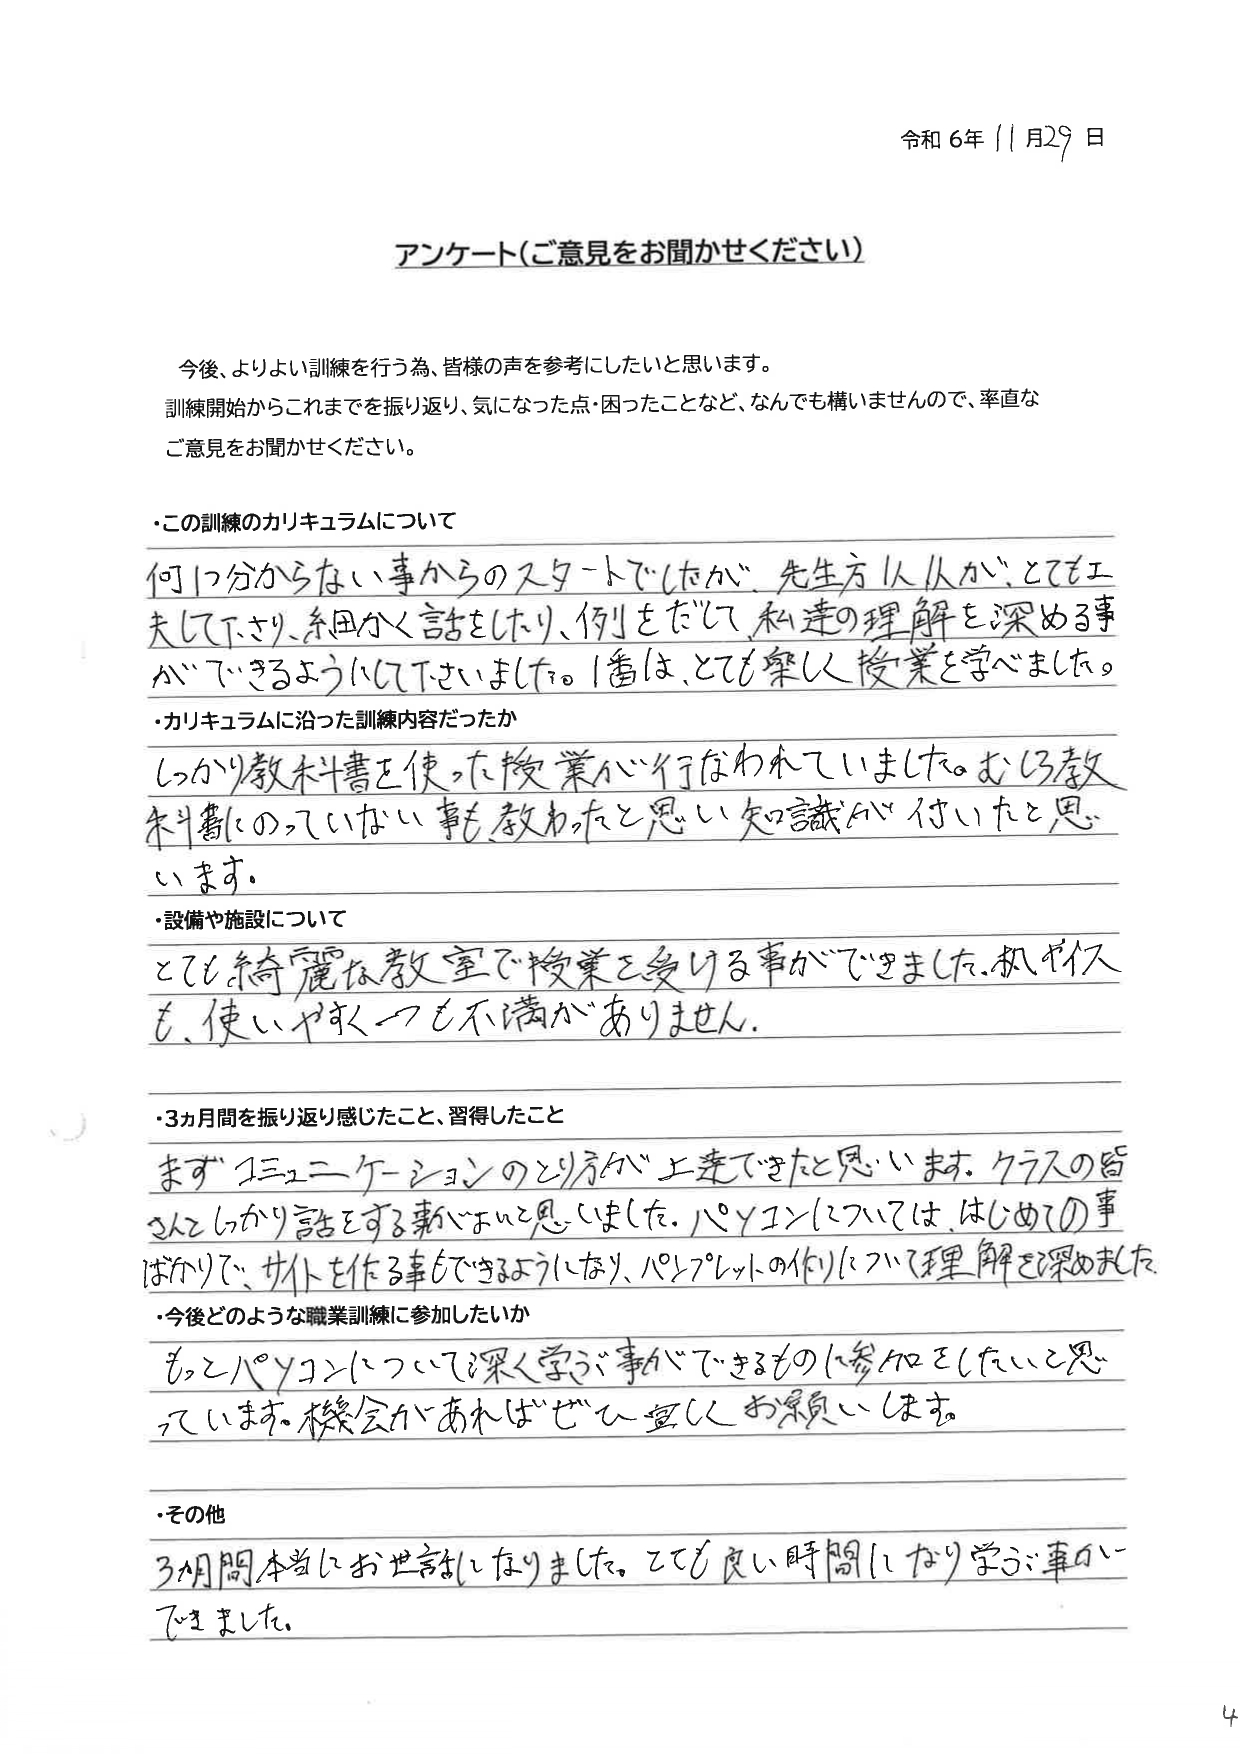 令和 6年 11 月29 日
アンケート(ご意見をお聞かせください)
今後、よりよい訓練を行う為、皆様の声を参考にしたいと思います。
訓練開始からこれまでを振り返り、気になった点・困ったことなど、なんでも構いませんので、率直な
ご意見をお聞かせください。
・この訓練のカリキュラムについて
何1つ分からない事からのスタートでしたが、先生方1人1人が、とても工
夫して下さり、細かく話をしたり、例をだして、私達の理解を深める事
ができるようにして下さいました。1番は、とても楽しく授業を学べました。
・カリキュラムに沿った訓練内容だったか
しっかり教科書を使った授業が行なわれていました。むしろ教
科書にのっていない事も、教わったと思い知識が付いたと思
います。
・設備や施設について
とても綺麗な教室で授業を受ける事ができました。机やイス
も、使いやすく一つも不満がありません。
・3ヵ月間を振り返り感じたこと、習得したこと
まずコミュニケーションのとり方が上達できたと思います。クラスの皆
さんとしっかり話をする事がよいと思いました。パソコンについては、はじめての事
ばかりで、サイトを作る事もできるようになり、パンプレットの作りについて理解を深めました。
・今後どのような職業訓練に参加したいか
もっとパソコンについて深く学ぶ事ができるものに参加をしたいと思
っています。機会があればぜひ宜しくお願いします。
・その他
3ヵ月間本当にお世話になりました。とても良い時間になり学ぶ事が
できました。
4